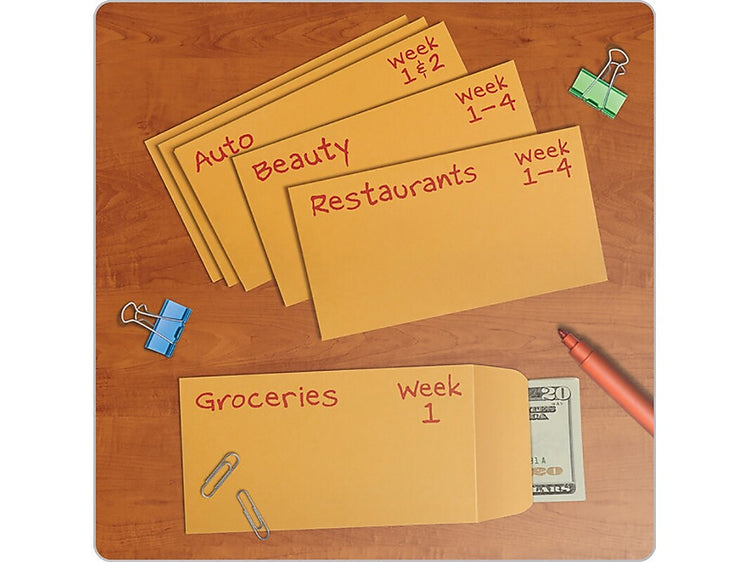 Week
1 & 2
Auto
Week
1-4
Beauty
Week
1-4
Restaurants
Groceries
Week
1
20
20